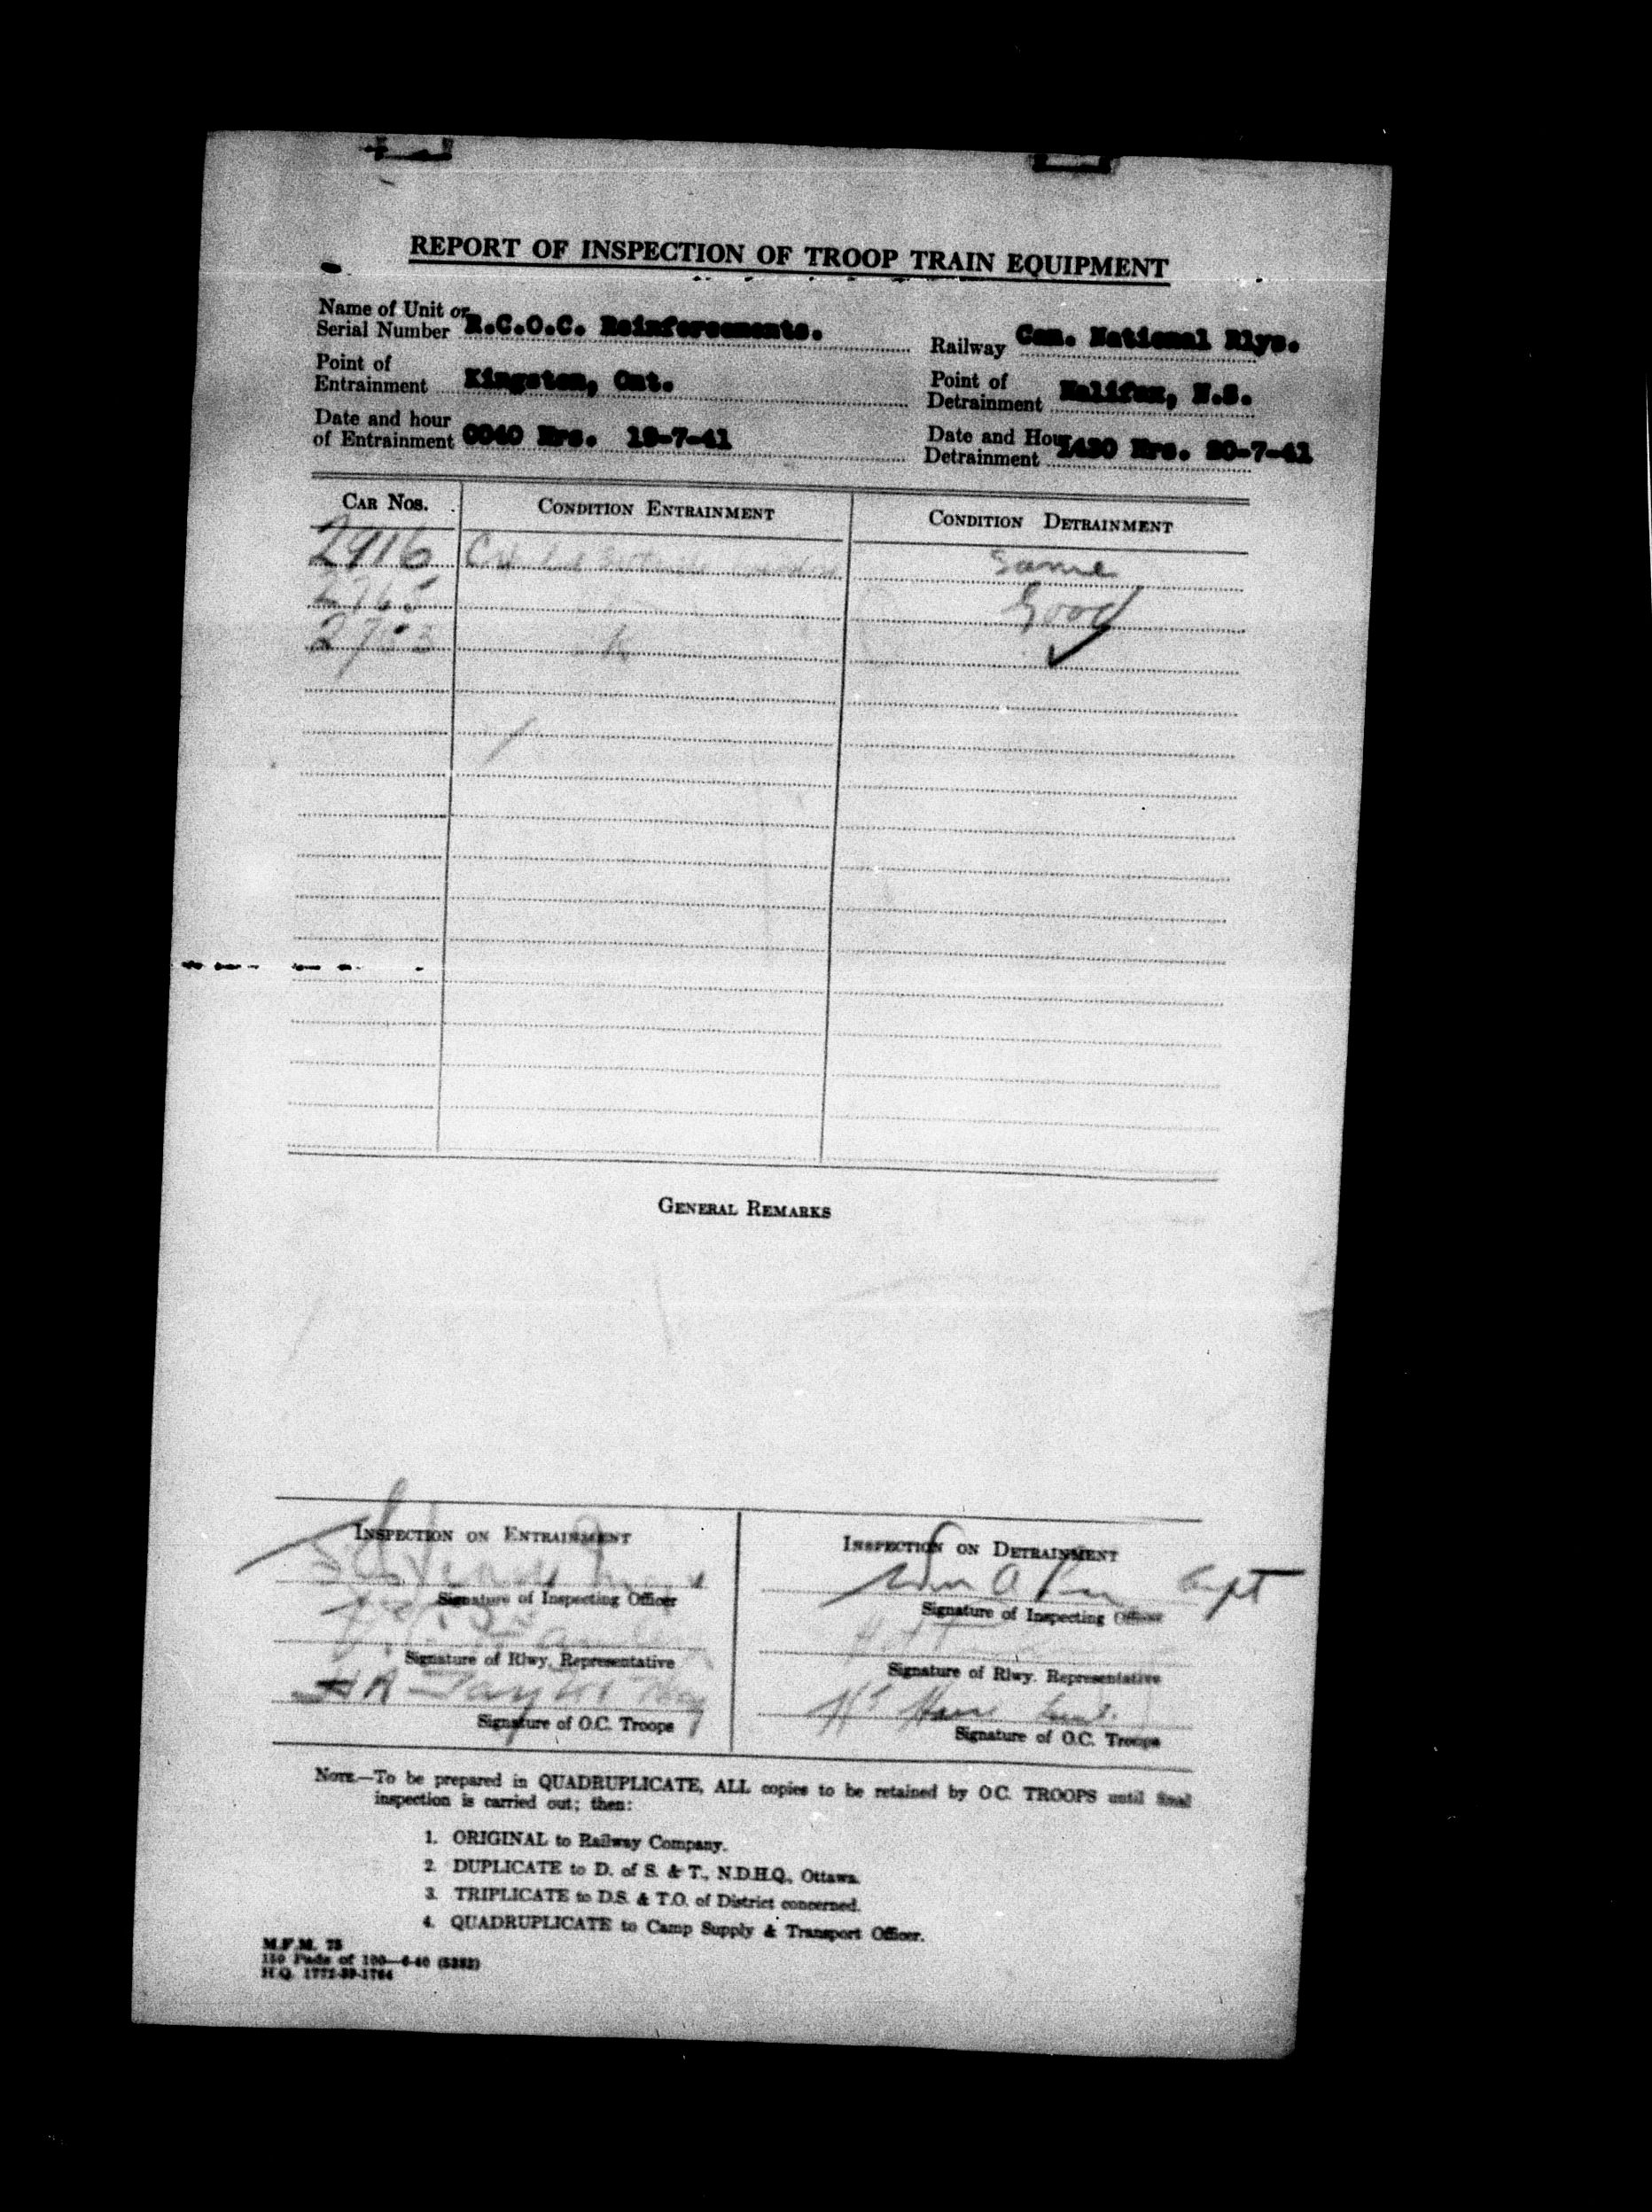 REPORT OF INSPECTION OF TROOP TRAIN EQUIPMENT
Name of Unit or
Serial Number R.C.O.C. Reinforcements.
Railway Can. National Rlys.
Point of
Entrainment Kingston, Ont.
Point of
Detrainment Halifax, N.S.
Date and hour
of Entrainment 0040 Hrs. 19-7-41
Date and Hour
Detrainment 1430 Hrs. 20-7-41
CAR NOS. CONDITION ENTRAINMENT CONDITION DETRAINMENT
2916 same
Good
GENERAL REMARKS
INSPECTION ON ENTRAINMENT
Signature of Inspecting Officer
Signature of Rlwy. Representative
HA Taylor
Signature of O.C. Troops
INSPECTION ON DETRAINMENT
Capt
Signature of Inspecting Officer
Signature of Rlwy. Representative
Signature of O.C. Troops
NOTE.—To be prepared in QUADRUPLICATE, ALL copies to be retained by O.C. TROOPS until final
inspection is carried out; then:
1. ORIGINAL to Railway Company.
2. DUPLICATE to D. of S. & T., N.D.H.Q., Ottawa.
3. TRIPLICATE to D.S. & T.O. of District concerned.
4. QUADRUPLICATE to Camp Supply & Transport Officer.
M.F.M. 75
150 Pads of 100—6-40 (5282)
H.Q. 1772-39-1764